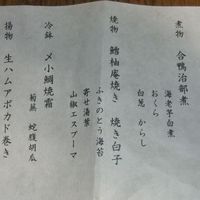 煮物 合鴨治部煮
海老芋白煮
おくら
白葱 からし
焼物 鰆柚庵焼き 焼き白子
ふきのとう海苔
寄せ湯葉
山椒エスプーマ
冷鉢 〆小鯛焼霜
菊蕪 蛇腹胡瓜
揚物 生ハムアボカド巻き